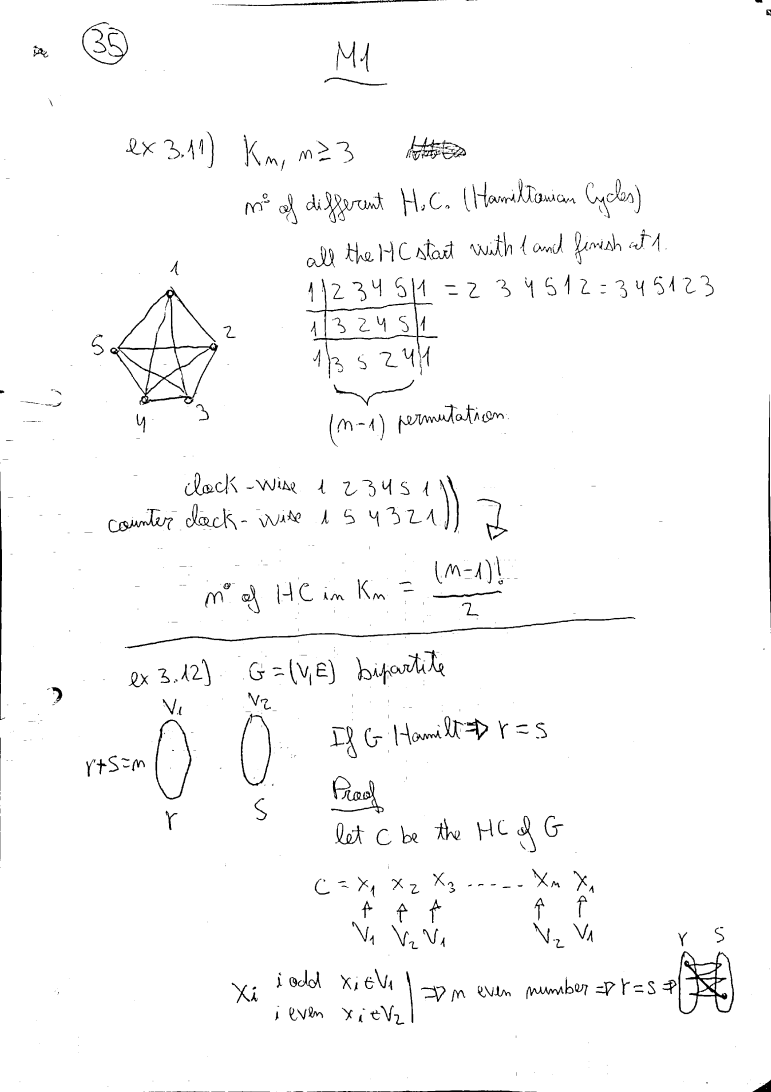 35
M1
ex 3.11) Kn, n≥3
n° of different H.C. (Hamiltonian Cycles)
all the HC start with 1 and finish at 1.
1|2 3 4 5|1 = 2 3 4 5 1 2 = 3 4 5 1 2 3
1|3 2 4 5|1
1|3 5 2 4|1
(n-1) permutation
1
5 2
4 3
clock-wise 1 2 3 4 5 1
counter clock-wise 1 5 4 3 2 1
n° of HC in Kn = (n-1)!/2
ex 3.12) G=(V,E) bipartite
V1 V2
r+s=n
r s
If G Hamilt ⇒ r=s
Proof
let C be the HC of G
C = x1 x2 x3 ------ xn x1
↑ ↑ ↑ ↑ ↑
V1 V2 V1 V2 V1
r s
xi i odd xi∈V1
i even xi∈V2 | ⇒ n even number ⇒ r=s ⇒